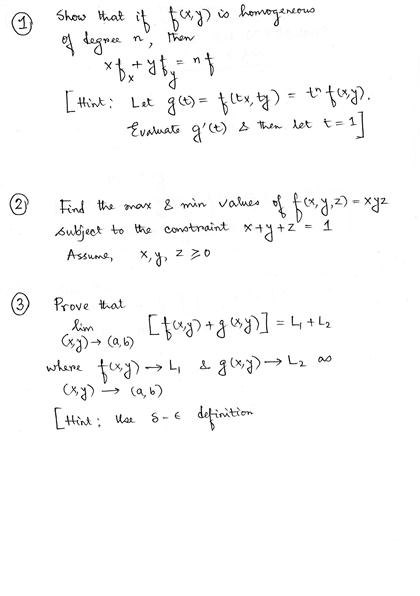 ① Show that if f(x,y) is homogeneous
of degree n, then
xf_x + yf_y = nf
[Hint: Let g(t) = f(tx, ty) = tⁿ f(x,y).
Evaluate g'(t) & then let t = 1]
② Find the max & min values of f(x,y,z) = xyz
subject to the constraint x+y+z = 1
Assume, x, y, z ≥ 0
③ Prove that
lim [f(x,y) + g(x,y)] = L₁ + L₂
(x,y) → (a,b)
where f(x,y) → L₁ & g(x,y) → L₂ as
(x,y) → (a,b)
[Hint: Use δ-ε definition